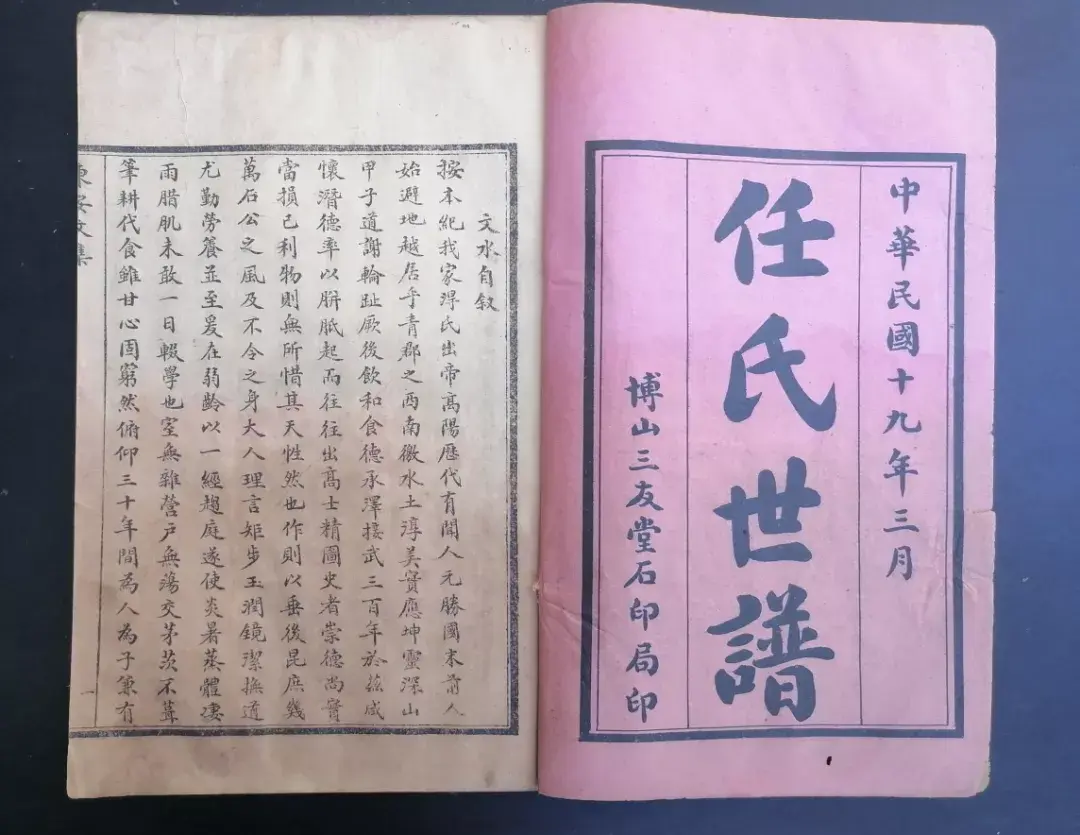 中華民國十九年三月
任氏世譜
博山三友堂石印局印
文水自敘
按本紀我家得氏出帝高陽歷代有聞人元勝國末前人
始避地越居乎青郡之西南徼水土淳美實應坤靈深山
甲子道謝輪趾厥後飲和食德承澤接武三百年於茲咸
懷潛德率以胼胝起而往往出高士精圖史者崇德尚實
當損己利物則無所惜其天性然也作則以垂後昆庶幾
萬石公之風及不令之身大人理言矩步玉潤鏡潔撫道
尤勤勞養並至爰在弱齡以一經趨庭遂使炎暑蒸體淒
雨腊肌未敢一日輟學也室無雜營戶無蕩交茅茨不葺
筆耕代食雖甘心固窮然俯仰三十年間為人為子兼有
文集